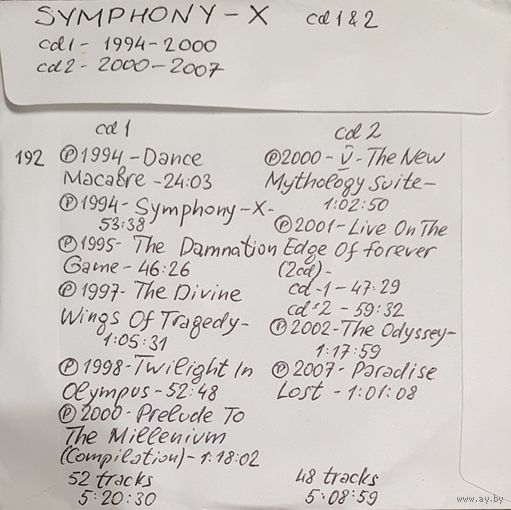 SYMPHONY-X cd 1 & 2
cd1 - 1994-2000
cd2 - 2000-2007
cd 1
192 Ⓟ1994-Dance
Macabre -24:03
Ⓟ1994- Symphony-X-
53:38
Ⓟ1995- The Damnation
Game- 46:26
Ⓟ1997- The Divine
Wings Of Tragedy-
1:05:31
Ⓟ1998-Twilight In
Olympus-52:48
Ⓟ2000-Prelude To
The Millenium
(Compilation)-1:18:02
52 tracks
5:20:30
cd 2
Ⓟ2000-V-The New
Mythology Suite-
1:02:50
Ⓟ2001-Live On The
Edge Of Forever
(2cd)-
cd-1-47:29
cd-2-59:32
Ⓟ2002-The Odyssey-
1:17:59
Ⓟ2007-Paradise
Lost - 1:01:08
48 tracks
5:08:59
www.ay.by